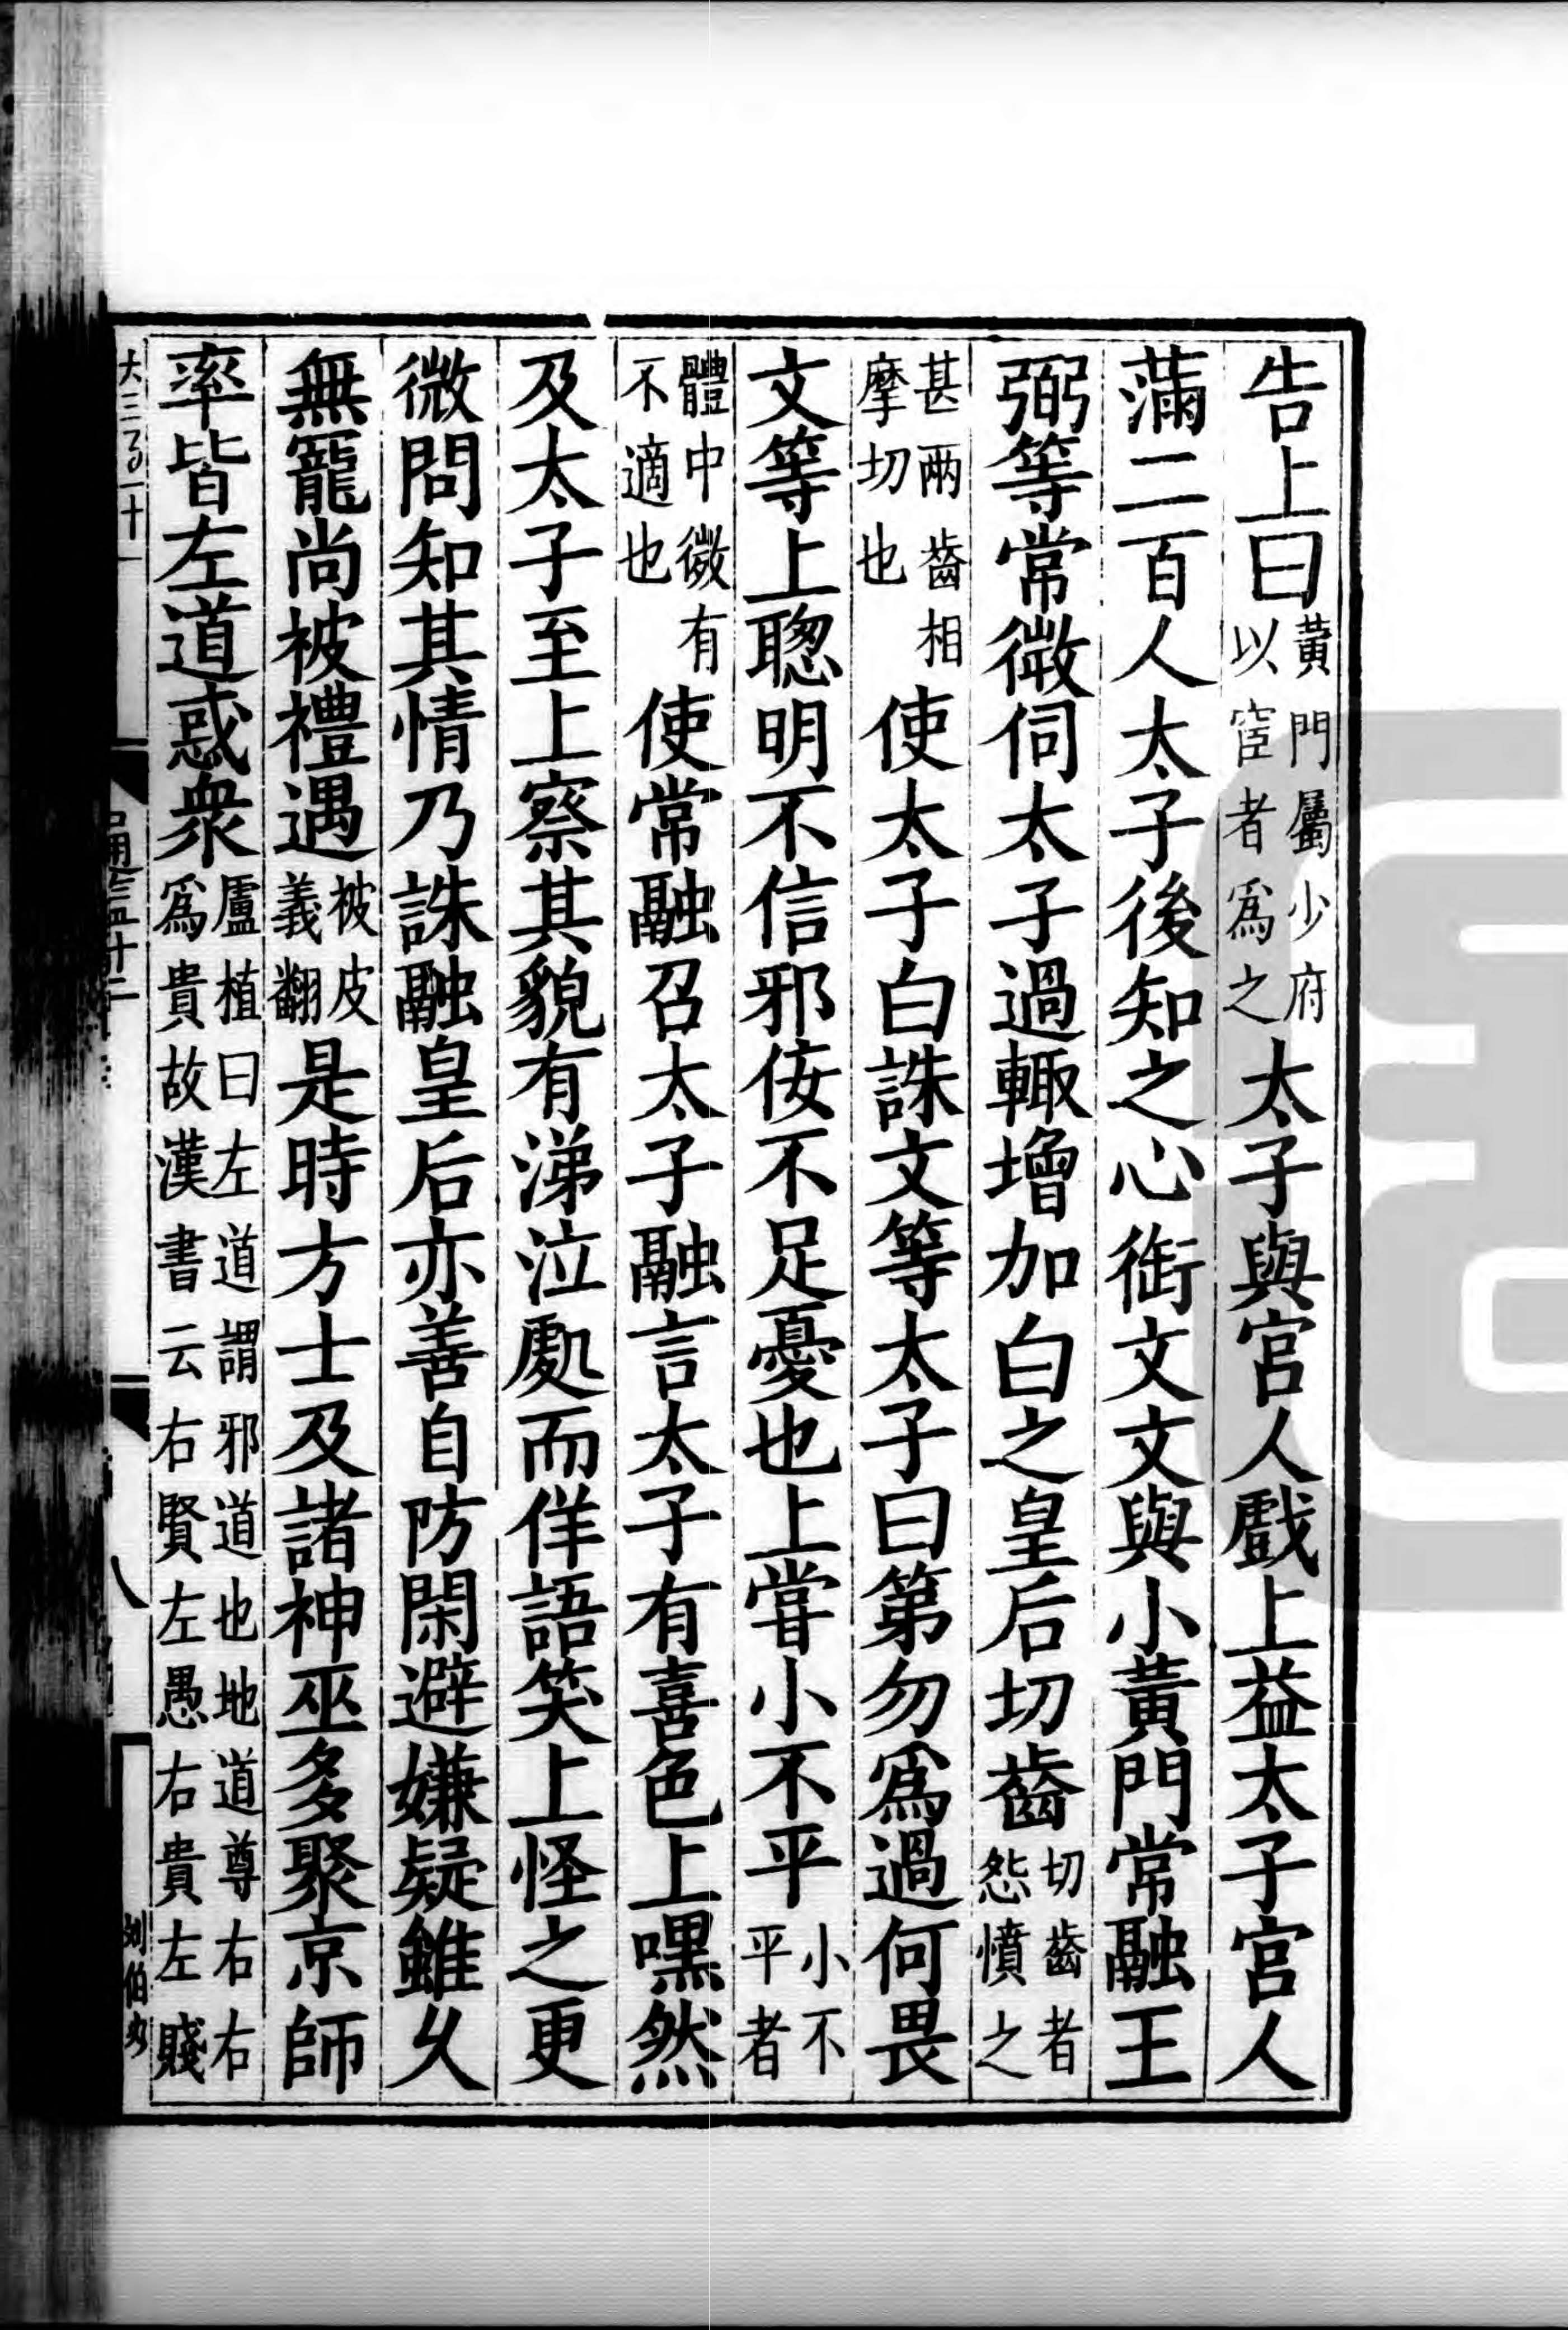 告上曰黃門屬少府以宦者爲之太子與宮人戲上益太子宮人
滿二百人太子後知之心銜文文與小黃門常融王
弼等常微伺太子過輒增加白之皇后切齒切齒者怨憤之
甚兩齒相摩切也使太子白誅文等太子曰第勿爲過何畏
文等上聰明不信邪佞不足憂也上嘗小不平小不平者
體中微有不適也使常融召太子融言太子有喜色上嘿然
及太子至上察其貌有涕泣處而佯語笑上怪之更
微問知其情乃誅融皇后亦善自防閑避嫌疑雖久
無寵尚被禮遇被皮義翻是時方士及諸神巫多聚京師
率皆左道惑衆盧植曰左道謂邪道也地道尊右右爲貴故漢書云右賢左愚右貴左賤
八